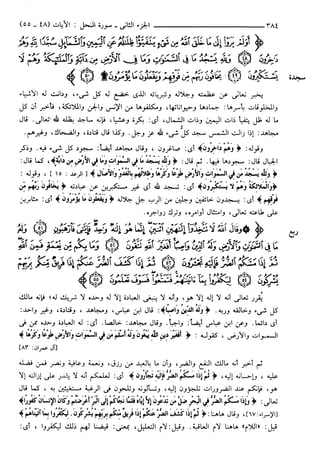 ٣٨٤ الجزء الثاني - سورة النحل : الآيات (٤٨ - ٥٥)
﴿ أَوَلَمْ يَرَوْا إِلَىٰ مَا خَلَقَ اللَّهُ مِن شَيْءٍ يَتَفَيَّأُ ظِلَالُهُ عَنِ الْيَمِينِ وَالشَّمَائِلِ سُجَّدًا لِّلَّهِ وَهُمْ
دَاخِرُونَ ﴿٤٨﴾ وَلِلَّهِ يَسْجُدُ مَا فِي السَّمَاوَاتِ وَمَا فِي الْأَرْضِ مِن دَابَّةٍ وَالْمَلَائِكَةُ وَهُمْ لَا
يَسْتَكْبِرُونَ ﴿٤٩﴾ يَخَافُونَ رَبَّهُم مِّن فَوْقِهِمْ وَيَفْعَلُونَ مَا يُؤْمَرُونَ ﴿٥٠﴾
سجدة
يخبر تعالى عن عظمته وجلاله وكبريائه الذي خضع له كل شيء، ودانت له الأشياء
والمخلوقات بأسرها: جمادها وحيواناتها، ومكلفوها من الإنس والجن والملائكة، فأخبر أن كل
ما له ظل يتفيأ ذات اليمين وذات الشمال، أي: بكرة وعشيا، فإنه ساجد بظله لله تعالى. قال
مجاهد: إذا زالت الشمس سجد كلُّ شيء لله عز وجل. وكذا قال قتادة، والضحاك، وغيرهم.
وقوله: ﴿ وَهُمْ دَاخِرُونَ ﴾ أي: صاغرون. وقال مجاهد أيضاً: سجود كل شيء فيه. وذكر
الجبال قال: سجودها فيها. ثم قال: ﴿ وَلِلَّهِ يَسْجُدُ مَا فِي السَّمَاوَاتِ وَمَا فِي الْأَرْضِ مِن دَابَّةٍ ﴾، كما قال:
﴿ وَلِلَّهِ يَسْجُدُ مَن فِي السَّمَاوَاتِ وَالْأَرْضِ طَوْعًا وَكَرْهًا وَظِلَالُهُم بِالْغُدُوِّ وَالْآصَالِ ﴾ [الرعد : ١٥]، وقوله :
﴿ وَالْمَلَائِكَةُ وَهُمْ لَا يَسْتَكْبِرُونَ ﴾ أي: تسجد لله أي غير مستكبرين عن عبادته ﴿ يَخَافُونَ رَبَّهُم مِّن
فَوْقِهِمْ ﴾ أي: يسجدون خائفين وجلين من الرب جل جلاله ﴿ وَيَفْعَلُونَ مَا يُؤْمَرُونَ ﴾ أي: مثابرين
على طاعته تعالى، وامتثال أوامره، وترك زواجره.
ربع
﴿ وَقَالَ اللَّهُ لَا تَتَّخِذُوا إِلَٰهَيْنِ اثْنَيْنِ إِنَّمَا هُوَ إِلَٰهٌ وَاحِدٌ فَإِيَّايَ فَارْهَبُونِ ﴿٥١﴾ وَلَهُ
مَا فِي السَّمَاوَاتِ وَالْأَرْضِ وَلَهُ الدِّينُ وَاصِبًا أَفَغَيْرَ اللَّهِ تَتَّقُونَ ﴿٥٢﴾ وَمَا بِكُم مِّن نِّعْمَةٍ فَمِنَ اللَّهِ
ثُمَّ إِذَا مَسَّكُمُ الضُّرُّ فَإِلَيْهِ تَجْأَرُونَ ﴿٥٣﴾ ثُمَّ إِذَا كَشَفَ الضُّرَّ عَنكُمْ إِذَا فَرِيقٌ مِّنكُم بِرَبِّهِمْ
يُشْرِكُونَ ﴿٥٤﴾ لِيَكْفُرُوا بِمَا آتَيْنَاهُمْ فَتَمَتَّعُوا فَسَوْفَ تَعْلَمُونَ ﴿٥٥﴾
يُقرر تعالى أنه لا إله إلا هو، وأنه لا ينبغي العبادة إلا له وحده لا شريك له، فإنه مالك
كل شيء وخالقه وربه. ﴿ وَلَهُ الدِّينُ وَاصِبًا ﴾: قال ابن عباس، ومجاهد ، وقتادة، وغير واحد:
أي دائما. وعن ابن عباس أيضاً: واجباً. وقال مجاهد: خالصا. أي: له العبادة وحده ممن في
السموات والأرض ، كقوله : ﴿ أَفَغَيْرَ دِينِ اللَّهِ يَبْغُونَ وَلَهُ أَسْلَمَ مَن فِي السَّمَاوَاتِ وَالْأَرْضِ طَوْعًا وَكَرْهًا ﴾
[آل عمران: ٨٣]
ثم أخبر أنه مالك النفع والضر، وأن ما بالعبد من رزق، ونعمة وعافية ونصر فمن فضله
عليه ، وإحسانه إليه، ﴿ ثُمَّ إِذَا مَسَّكُمُ الضُّرُّ فَإِلَيْهِ تَجْأَرُونَ ﴾ أي: لعلمكم أنه لا يقدر على إزالته إلا
هو، فإنكم عند الضرورات تلجؤون إليه، وتسألونه وتلحون في الرغبة مستغيثين به ، كما قال
تعالى: ﴿ وَإِذَا مَسَّكُمُ الضُّرُّ فِي الْبَحْرِ ضَلَّ مَن تَدْعُونَ إِلَّا إِيَّاهُ فَلَمَّا نَجَّاكُمْ إِلَى الْبَرِّ أَعْرَضْتُمْ وَكَانَ الْإِنسَانُ كَفُورًا ﴾
[الإسراء:٦٧]، وقال هاهنا: ﴿ ثُمَّ إِذَا كَشَفَ الضُّرَّ عَنكُمْ إِذَا فَرِيقٌ مِّنكُم بِرَبِّهِمْ يُشْرِكُونَ . لِيَكْفُرُوا بِمَا آتَيْنَاهُمْ ﴾
قيل: «اللام» هاهنا لام العاقبة. وقيل: لام التعليل، بمعنى: قيضنا لهم ذلك ليكفروا ، أي: